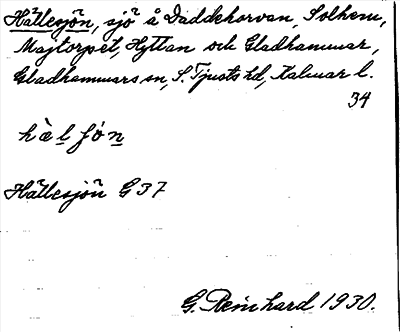 Hällesjön, sjö å Daddekorvan, Solhem,
Majtorpet, Hyttan och Gladhammar,
Gladhammars sn, S. Tjusts hd, Kalmar l.
34
hèlſǿn
Hällesjön G 37
G. Reinhard 1930.